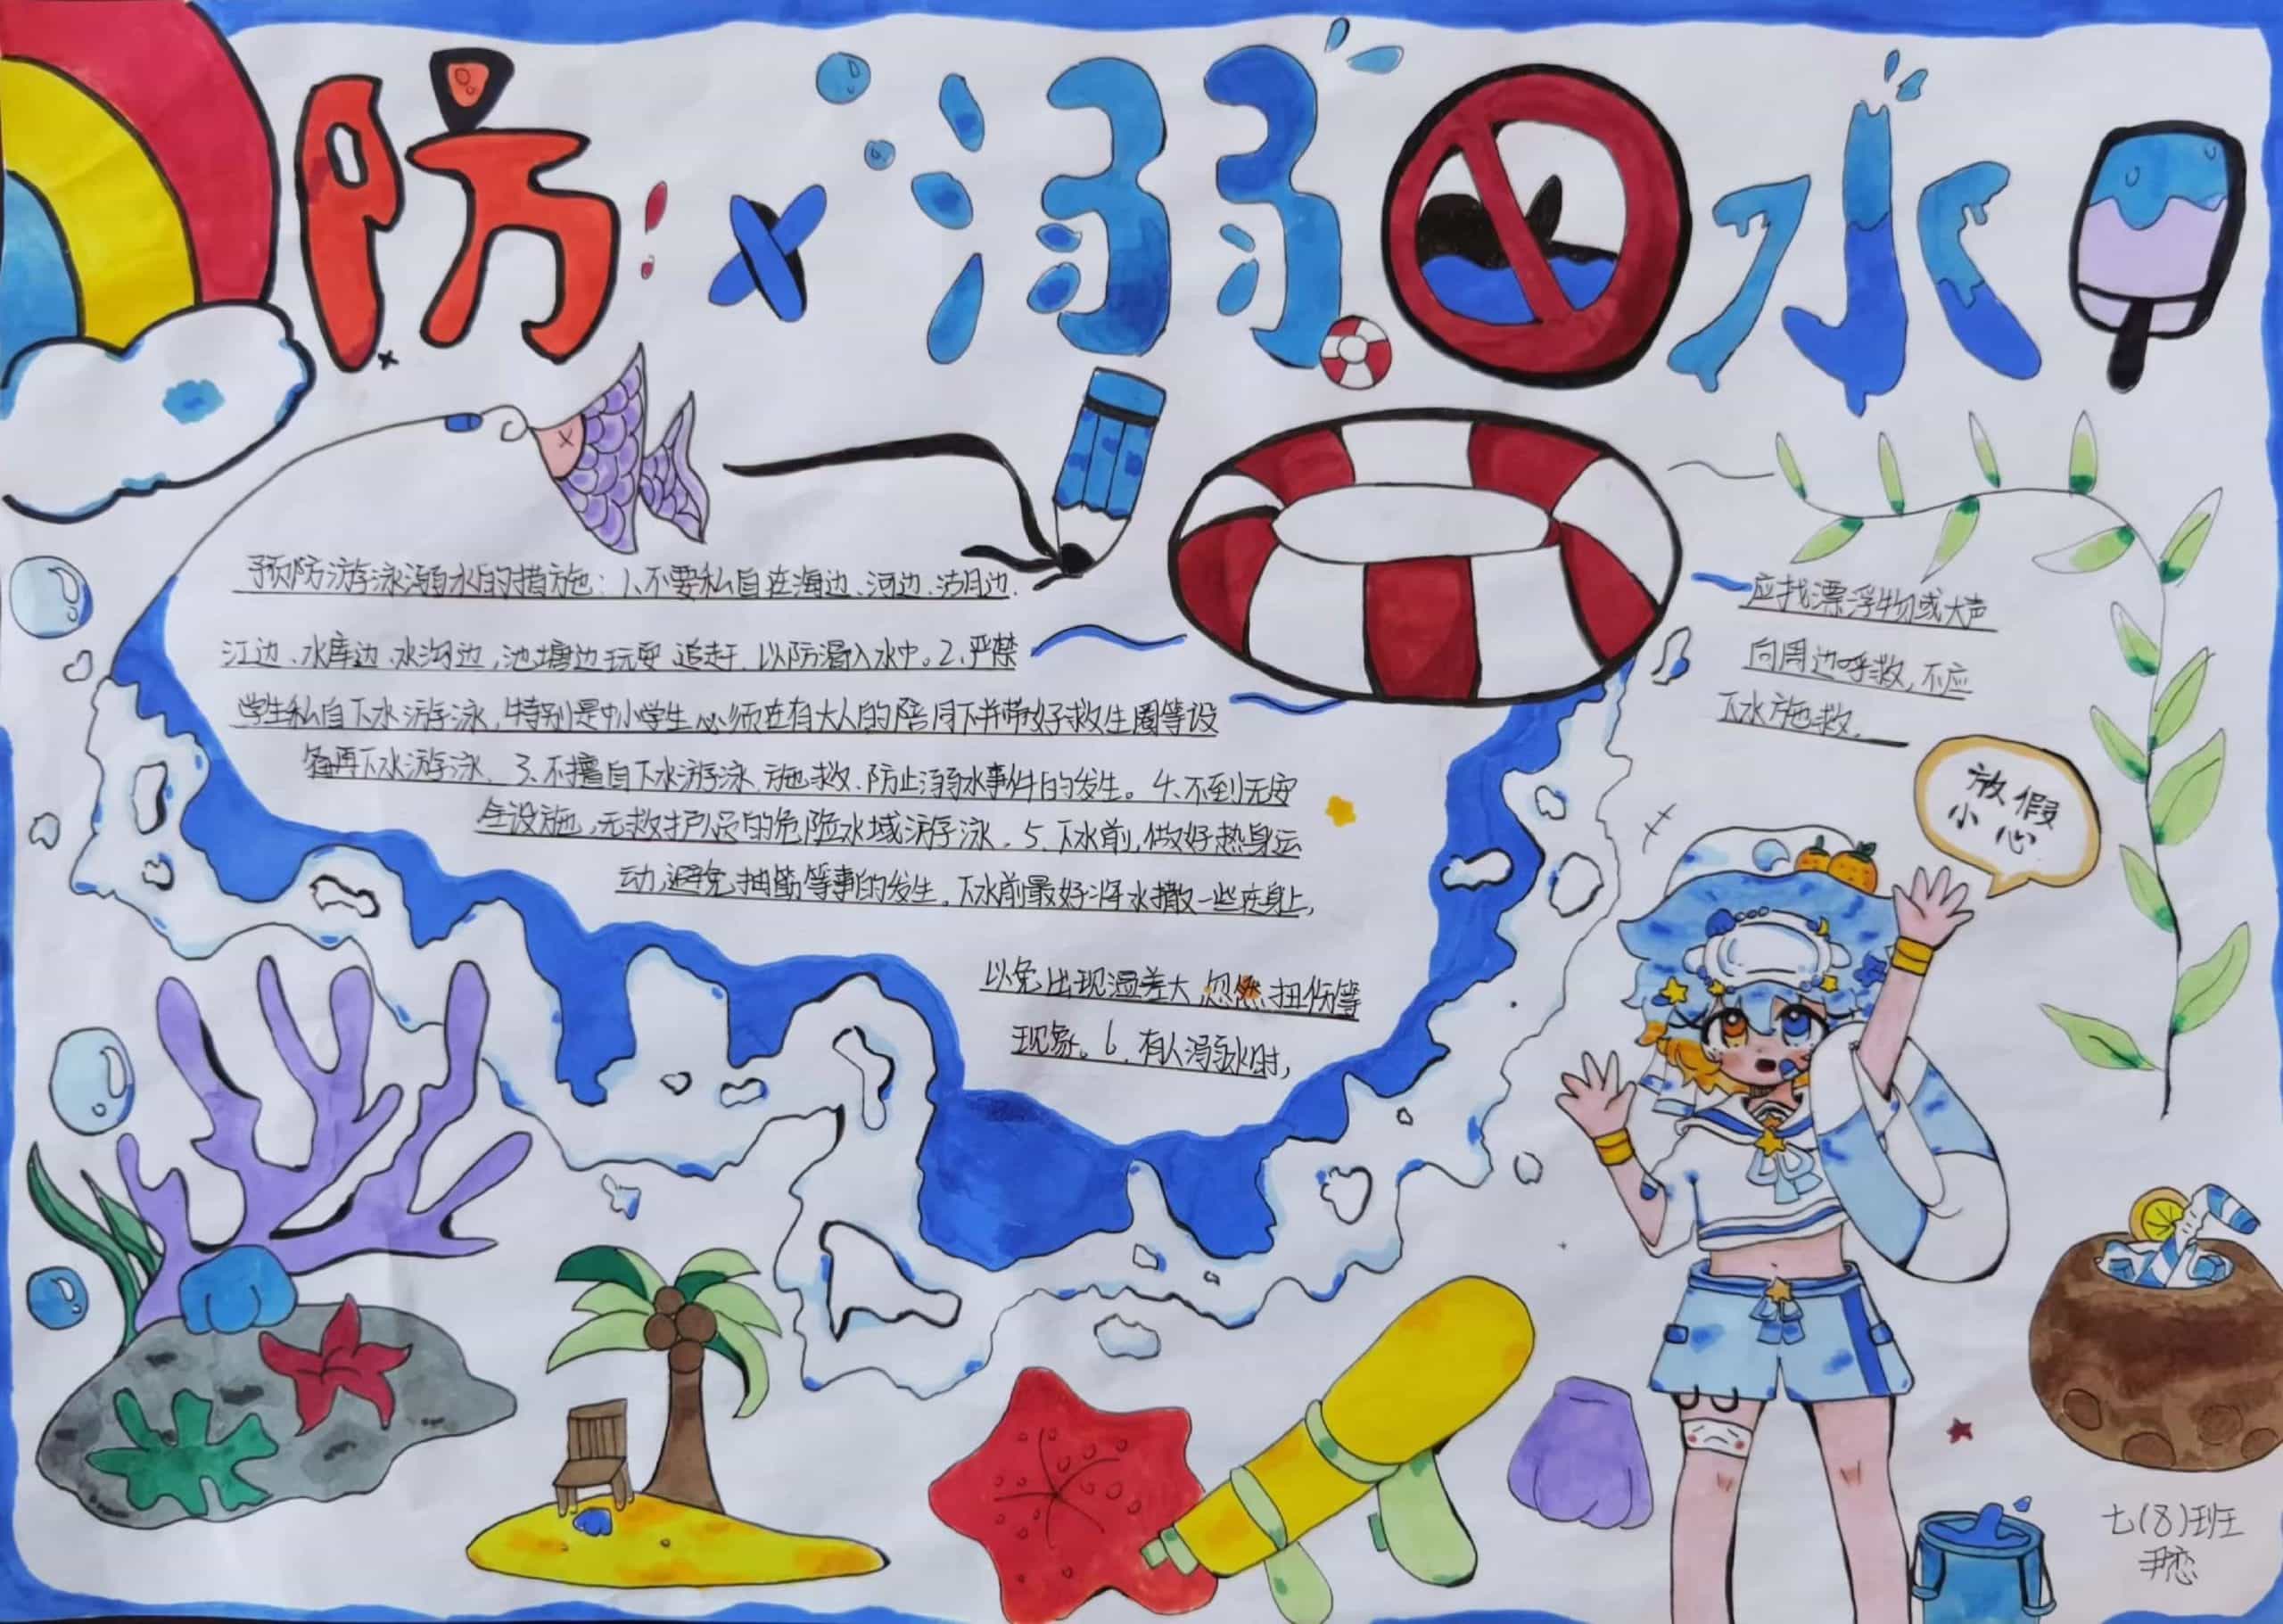 防溺水
预防游泳溺水的措施：1、不要私自在海边、河边、湖边.
江边、水库边、水沟边，池塘边玩耍、追赶，以防溺入水中。2、严禁
学生私自下水游泳，特别是中小学生必须在有大人的陪同下并带好救生圈等设
备再下水游泳。3、不擅自下水游泳、施救、防止溺水事件的发生。4、不到无安
全设施，无救护员的危险水域游泳。5、下水前，做好热身运
动，避免抽筋等事的发生。下水前最好将水撒一些在身上，
以免出现温差大，忽然扭伤等
现象。6、有人溺水时，
应找漂浮物或大声
向周边呼救，不应
下水施救。
放假
小心
七(8)班
尹恋